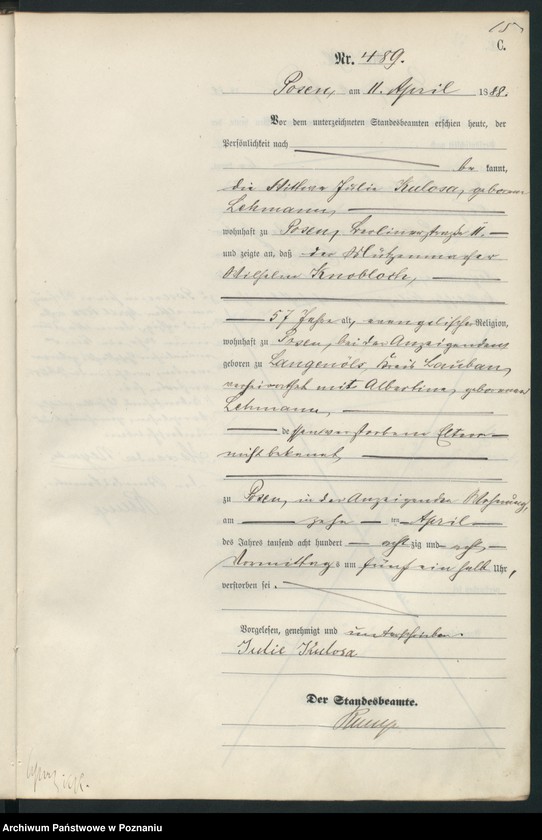 15
C.
Nr. 489.
Posen, am 11. April 1888.
Vor dem unterzeichneten Standesbeamten erschien heute, der
Persönlichkeit nach
be kannt,
die Wittwe Julie Kulosa, geborene
Lehmann,
wohnhaft zu Posen, Berlinerstraße 11.
und zeigte an, daß der Mützenmacher
Wilhelm Knobloch,
57 Jahre alt, evangelischer Religion,
wohnhaft zu Posen, bei der Anzeigenden
geboren zu Langenöls, Kreis Lauban,
verheirathet mit Albertine, geborenen
Lehmann,
dessen verstorbene Eltern
nicht bekannt
zu Posen, in der Anzeigenden Wohnung,
am zehn ten April
des Jahres tausend acht hundert acht zig und acht
Vormittags um fünf ein halb Uhr,
verstorben sei.
Vorgelesen, genehmigt und unterschrieben.
Julie Kulosa
Der Standesbeamte.
Archiwum Państwowe w Poznaniu